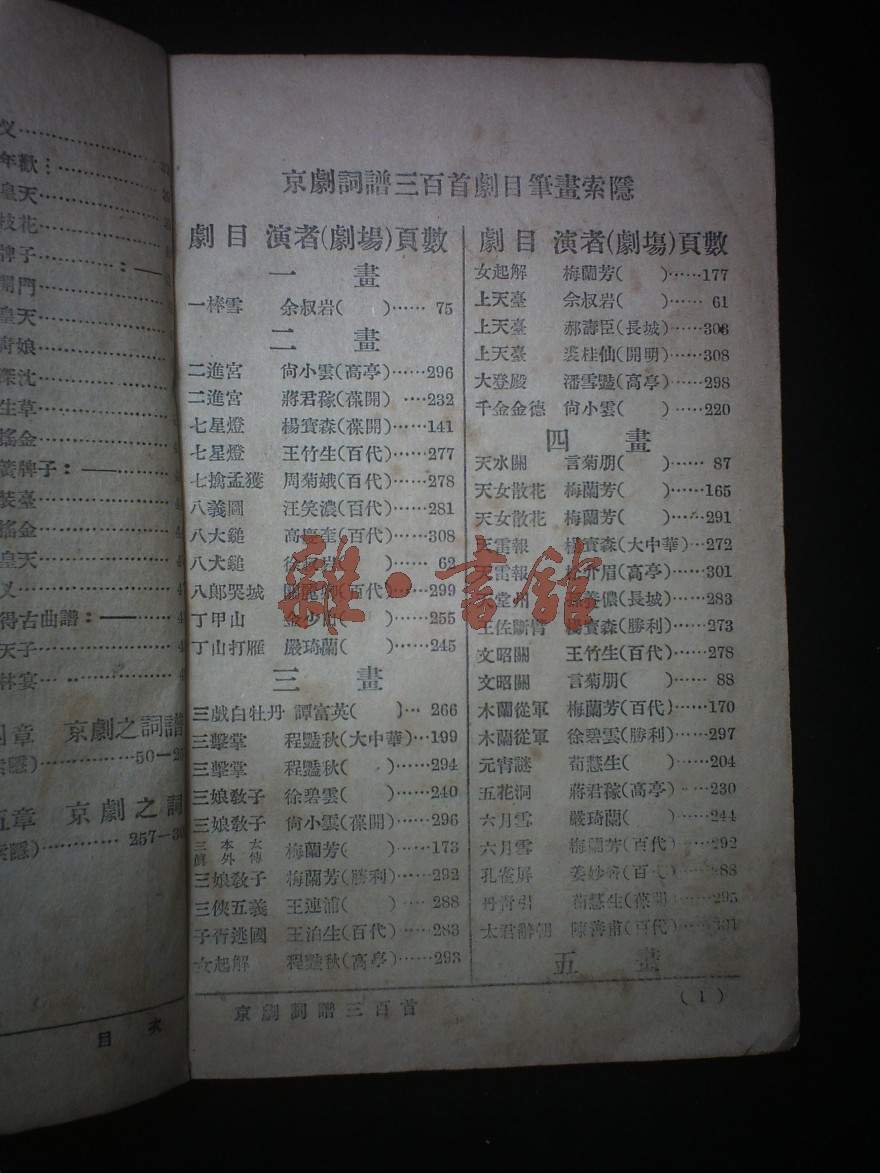 义……
年歡：…
皇天
枝花
牌子………：——
開門
皇天
青娘
深沈
生草
搖金
黃牌子：——
裝臺
搖金
皇天
义
得古曲譜：——
天子
林宴
四章　京劇之詞譜
索隱）……………50—25
五章　京劇之詞
索隱）…………257—30
目　次
京劇詞譜三百首劇目筆畫索隱
劇目　演者(劇場)頁數
一　畫
一棒雪　余叔岩(　)……75
二　畫
二進宮　尙小雲(高亭)……296
二進宮　蔣君稼(蓓開)…·232
七星燈　楊寶森(蓓開)……141
七星燈　王竹生(百代)……277
七擒孟獲　周菊娥(百代)……278
八義圖　汪笑濃(百代)……281
八大鎚　高慶奎(百代)……308
八大鎚　徐叔岩(　)……62
八郎哭城　(百代)……299
丁甲山　金少山(　)……255
丁山打雁　嚴琦蘭(　)……245
三　畫
三戲白牡丹　譚富英(　)…266
三擊掌　程豔秋(大中華)…199
三擊掌　程豔秋(　)……294
三娘敎子　徐碧雲(　)……240
三娘敎子　尙小雲(蓓開)……296
三本太眞外傳　梅蘭芳(　)……173
三娘敎子　梅蘭芳(勝利)……292
三俠五義　王連浦(　)……288
子胥逃國　王泊生(百代)……283
女起解　程豔秋(高亭)……293
劇目　演者(劇塲)頁數
女起解　梅蘭芳(　)……177
上天臺　余叔岩(　)……61
上天臺　郝壽臣(長城)……308
上天臺　裘桂仙(開明)……308
大登殿　潘雪豔(高亭)……298
千金金德　尙小雲(　)……220
四　畫
天水關　言菊朋(　)……87
天女散花　梅蘭芳(　)……165
天女散花　梅蘭芳(　)……291
天雷報　楊寶森(大中華)…272
天雷報　(高亭)……301
堂州　養儂(長城)……283
王佐斷臂　楊寶森(勝利)……273
文昭關　王竹生(百代)……278
文昭關　言菊朋(　)……88
木蘭從軍　梅蘭芳(百代)……170
木蘭從軍　徐碧雲(勝利)……297
元宵謎　荀慧生(　)……204
五花洞　蔣君稼(高亭)……230
六月雪　嚴琦蘭(　)……244
六月雪　梅蘭芳(百代)……292
孔雀屏　姜妙香(百　)……88
丹青引　荀慧生(蓓開)……295
太君辭朝　陳善甫(百代)……301
五　畫
京劇詞譜三百首
(1)
雜·書館